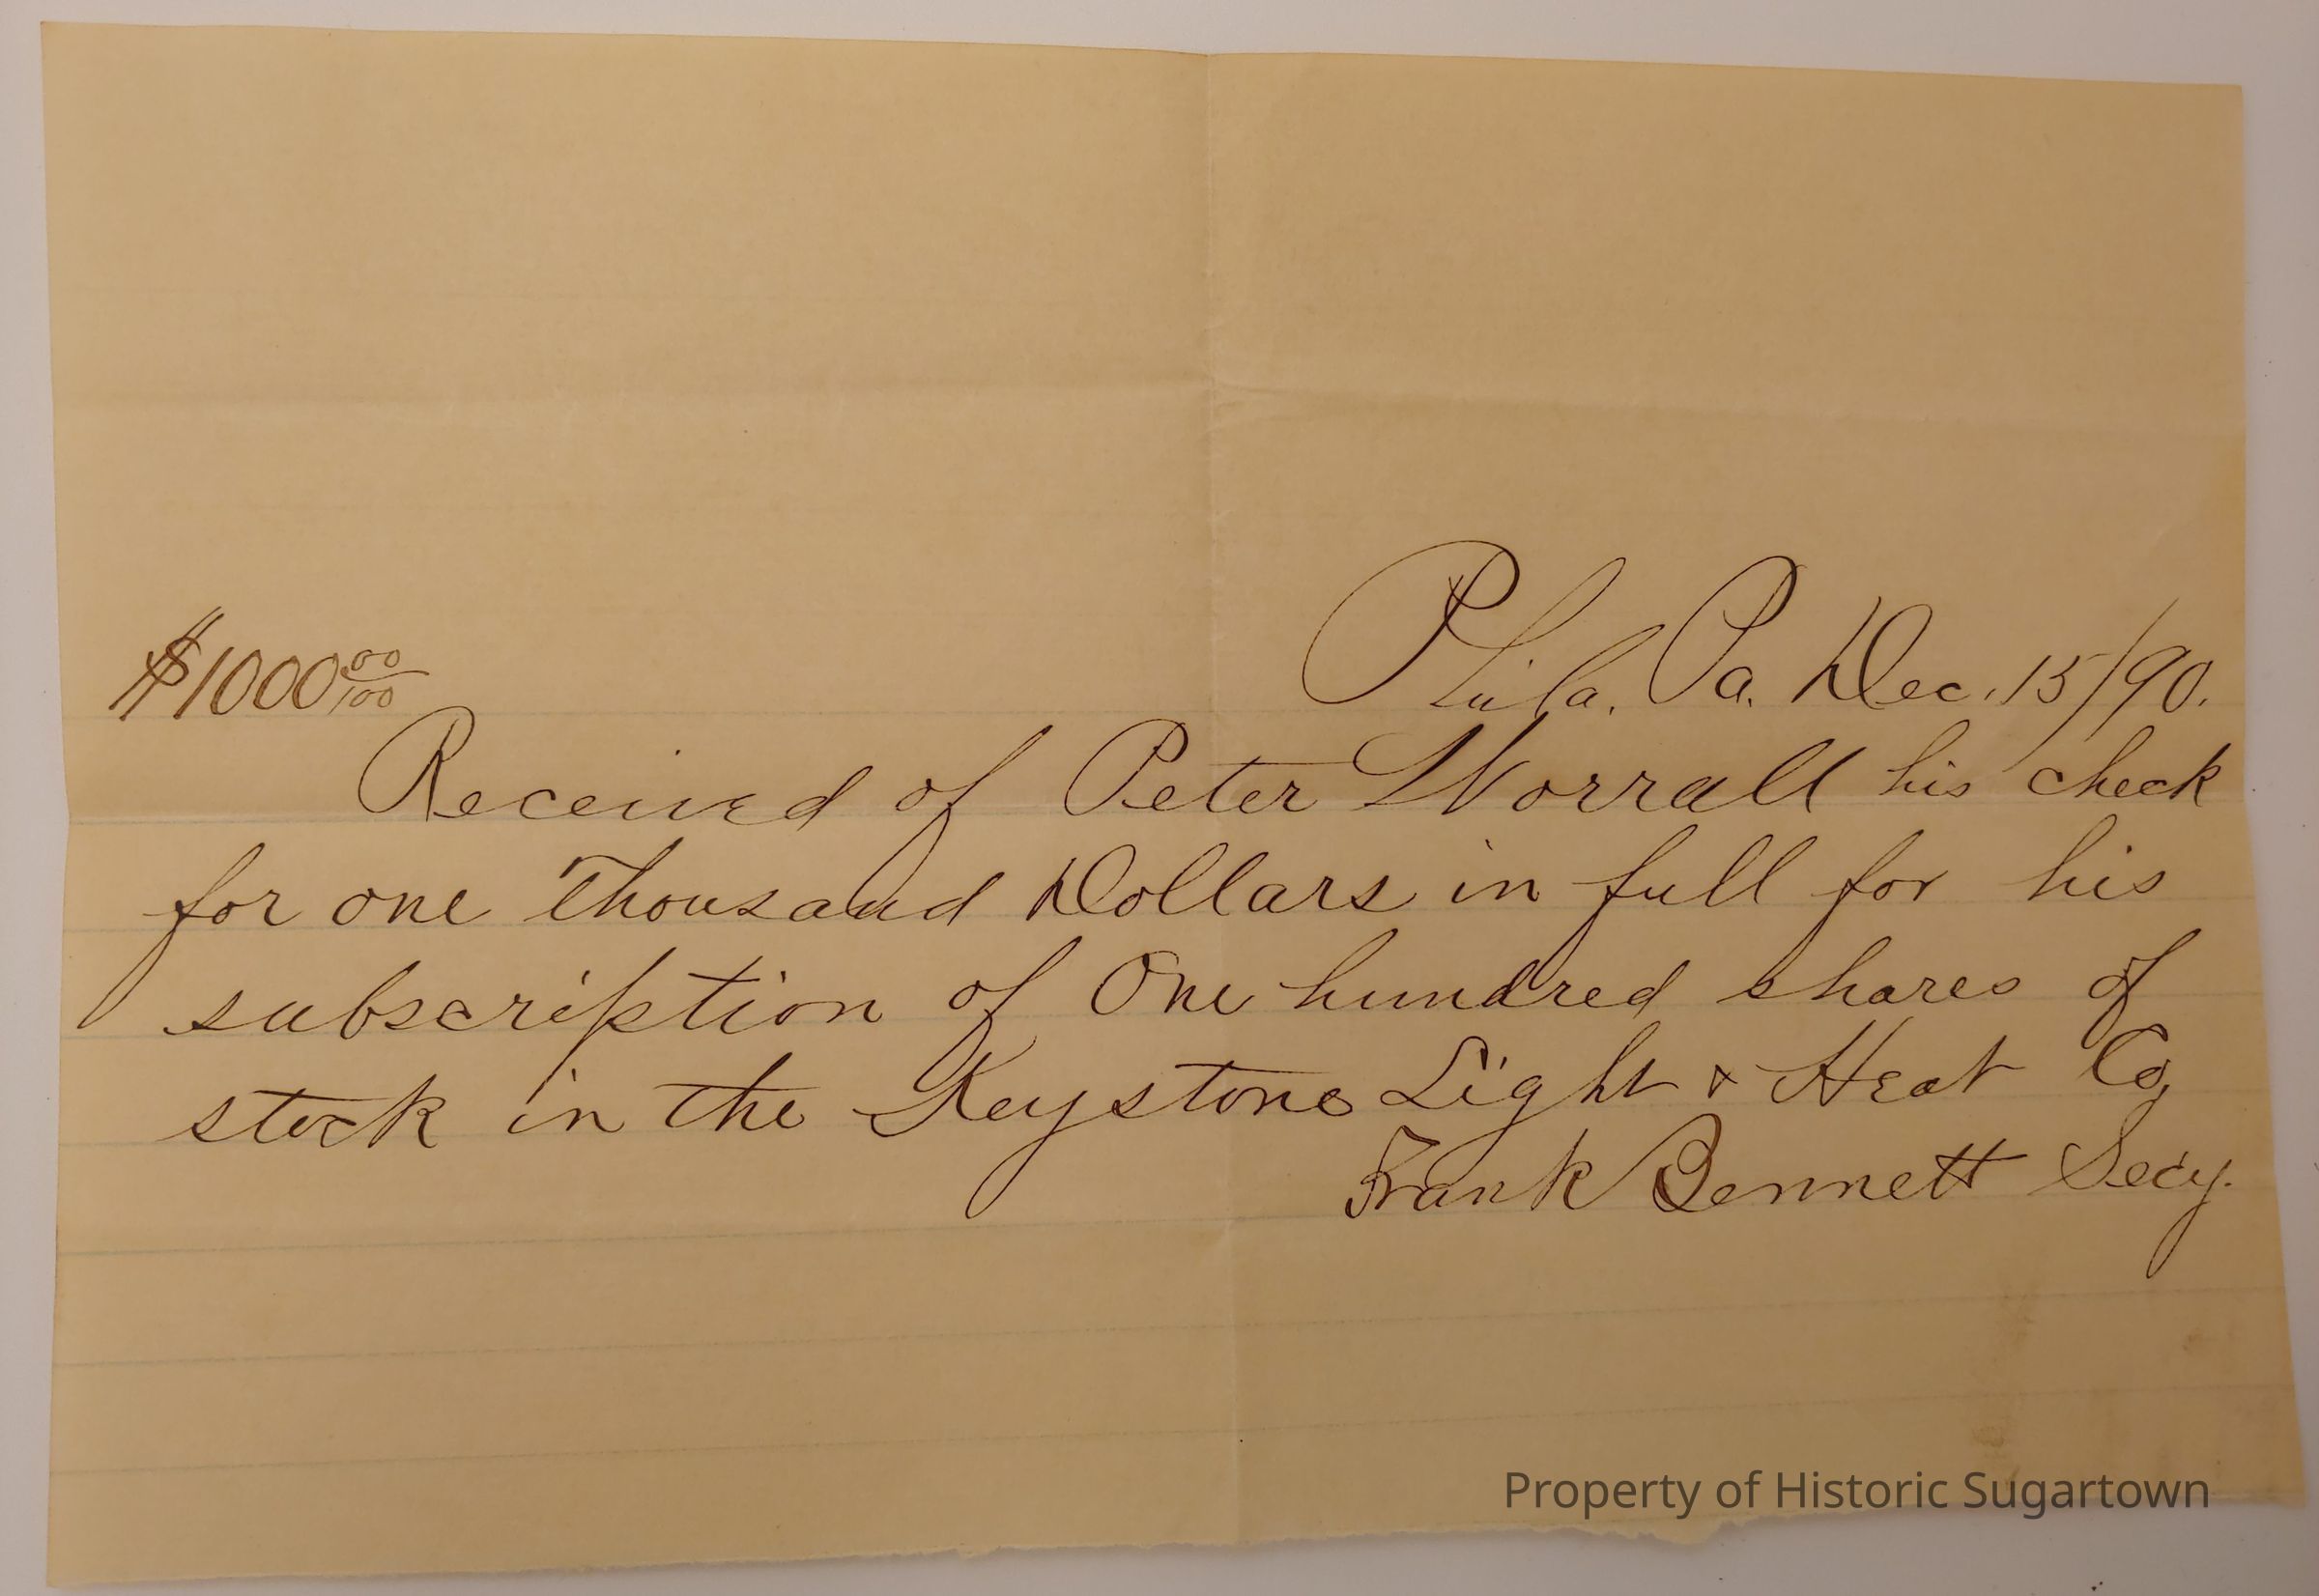 $1000 00/100 Phila. Pa. Dec. 15/90.
Received of Peter Worrall his check
for one Thousand Dollars in full for his
subscription of One hundred shares of
stock in the Keystone Light & Heat Co,
Frank Bennett Secy.
Property of Historic Sugartown